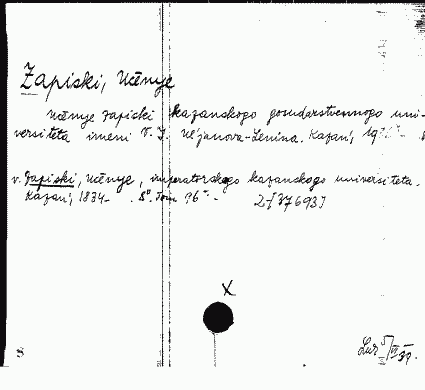 Zapiski, Učenye
Učenye zapiski kazanskogo gosudarstvennogo uni-
versiteta imeni V. I. Ul'janova-Lenina. Kazan',
v. Zapiski, Učenye, imperatorskogo kazanskogo universiteta.
Kazan', 1834- . 8°. Tom 96 - 2-[37693]
X
8